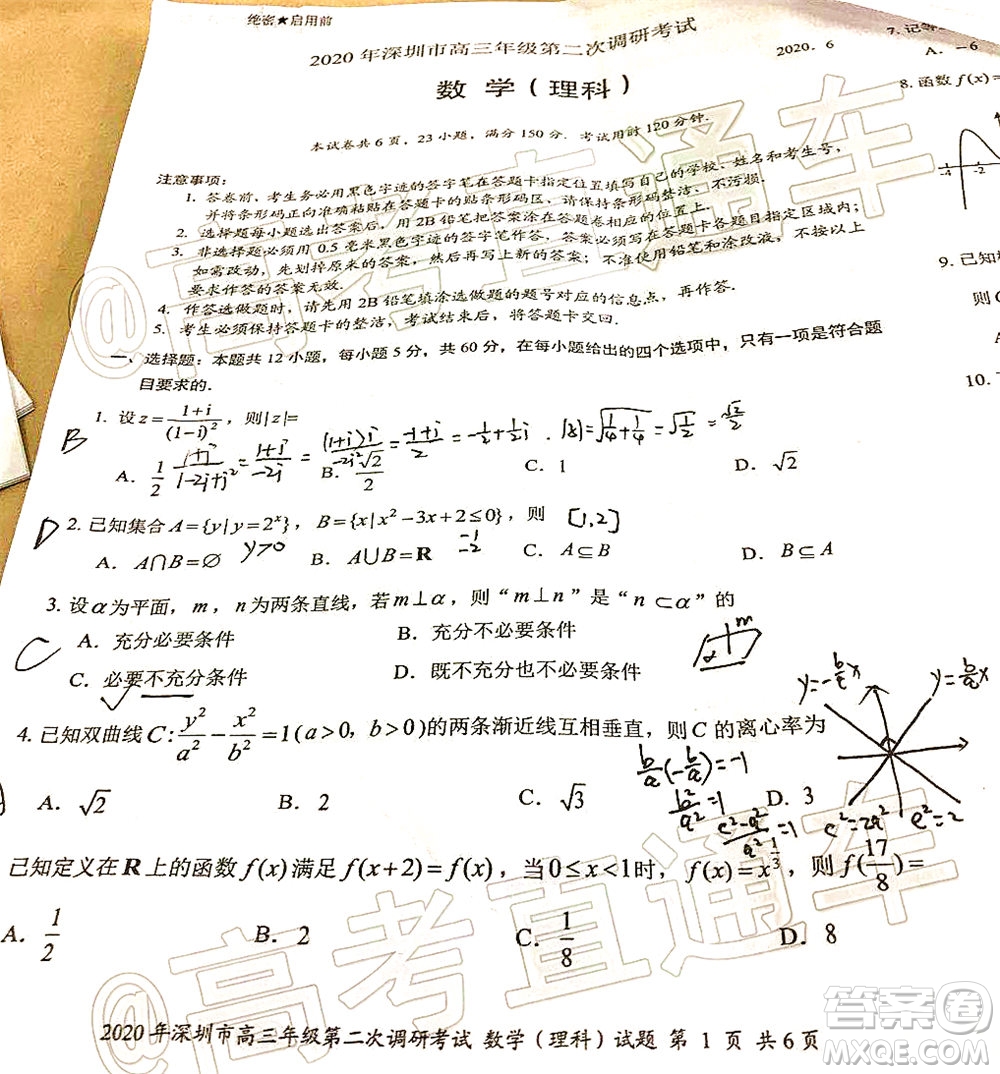 绝密★启用前
2020年深圳市高三年级第二次调研考试
数 学（理科）
2020．6
本试卷共6页，23小题，满分150分．考试用时120分钟．
注意事项：
1．答卷前，考生务必用黑色字迹的签字笔在答题卡指定位置填写自己的学校、姓名和考生号，
并将条形码正向准确粘贴在答题卡的贴条形码区，请保持条形码整洁、不污损．
2．选择题每小题选出答案后，用2B铅笔把答案涂在答题卷相应的位置上．
3．非选择题必须用0.5毫米黑色字迹的签字笔作答，答案必须写在答题卡各题目指定区域内；
如需改动，先划掉原来的答案，然后再写上新的答案；不准使用铅笔和涂改液，不按以上
要求作答的答案无效．
4．作答选做题时，请先用2B铅笔填涂选做题的题号对应的信息点，再作答．
5．考生必须保持答题卡的整洁，考试结束后，将答题卡交回．
一、选择题：本题共12小题，每小题5分，共60分，在每小题给出的四个选项中，只有一项是符合题
目要求的．
B
1．设z=(1+i)/(1-i)²，则|z|=
(1+i)/(1-2i+i²)=(1+i)/(-2i)=(1+i)i/(-2i²)=(-1+i)/2=-1/2+1/2i．|z|=√(1/4+1/4)=√(1/2)=√2/2
A．1/2 B．√2/2 C．1 D．√2
D
2．已知集合A={y|y=2ˣ}，B={x|x²-3x+2≤0}，则 [1,2]
y>0 -1 -2
A．A∩B=∅ B．A∪B=R C．A⊆B D．B⊆A
3．设α为平面，m，n为两条直线，若m⊥α，则“m⊥n”是“n⊂α”的
C
A．充分必要条件 B．充分不必要条件
C．必要不充分条件 D．既不充分也不必要条件
m
α
4．已知双曲线C:y²/a²-x²/b²=1(a>0，b>0)的两条渐近线互相垂直，则C的离心率为
y=-b/a x y=b/a x
b/a(-b/a)=-1
b²/a²=1
(c²-a²)/a²=1
c²=2a² e²=2
A．√2 B．2 C．√3 D．3
已知定义在R上的函数f(x)满足f(x+2)=f(x)，当0≤x<1时，f(x)=x^(1/3)，则f(17/8)=
A．1/2 B．2 C．1/8 D．8
2020年深圳市高三年级第二次调研考试 数学（理科）试题 第 1 页 共6页
7．记等
A．-6
8．函数f(x)=
-4 -2
9．已知
则
A
10．
@高考直通车
@高考直通车
答案圈
MXQE.COM